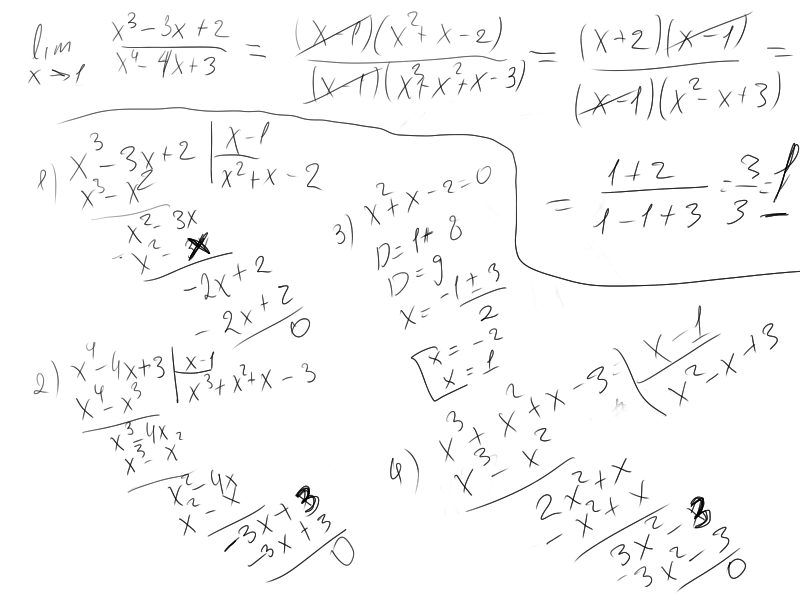 lim x→1 (x³ - 3x + 2)/(x⁴ - 4x + 3) = ((x-1)(x² + x - 2))/((x-1)(x³ + x² + x - 3)) = ((x+2)(x-1))/((x-1)(x² - x + 3)) =
= (1+2)/(1-1+3) = 3/3 = 1
1) x³ - 3x + 2 | x-1
x³ - x² | x² + x - 2
x² - 3x
- x² - x
-2x + 2
- 2x + 2
0
2) x⁴ - 4x + 3 | x-1
x⁴ - x³ | x³ + x² + x - 3
x³ - 4x
x³ - x²
x² - 4x
x² - x
-3x + 3
-3x + 3
0
3) x² + x - 2 = 0
D = 1 + 8
D = 9
x = (-1 ± 3)/2
x = -2
x = 1
4) x³ + x² + x - 3 | x - 1
x³ - x² | x² - x + 3
2x² + x
- x² + x
3x² - 3
-3x² - 3
0